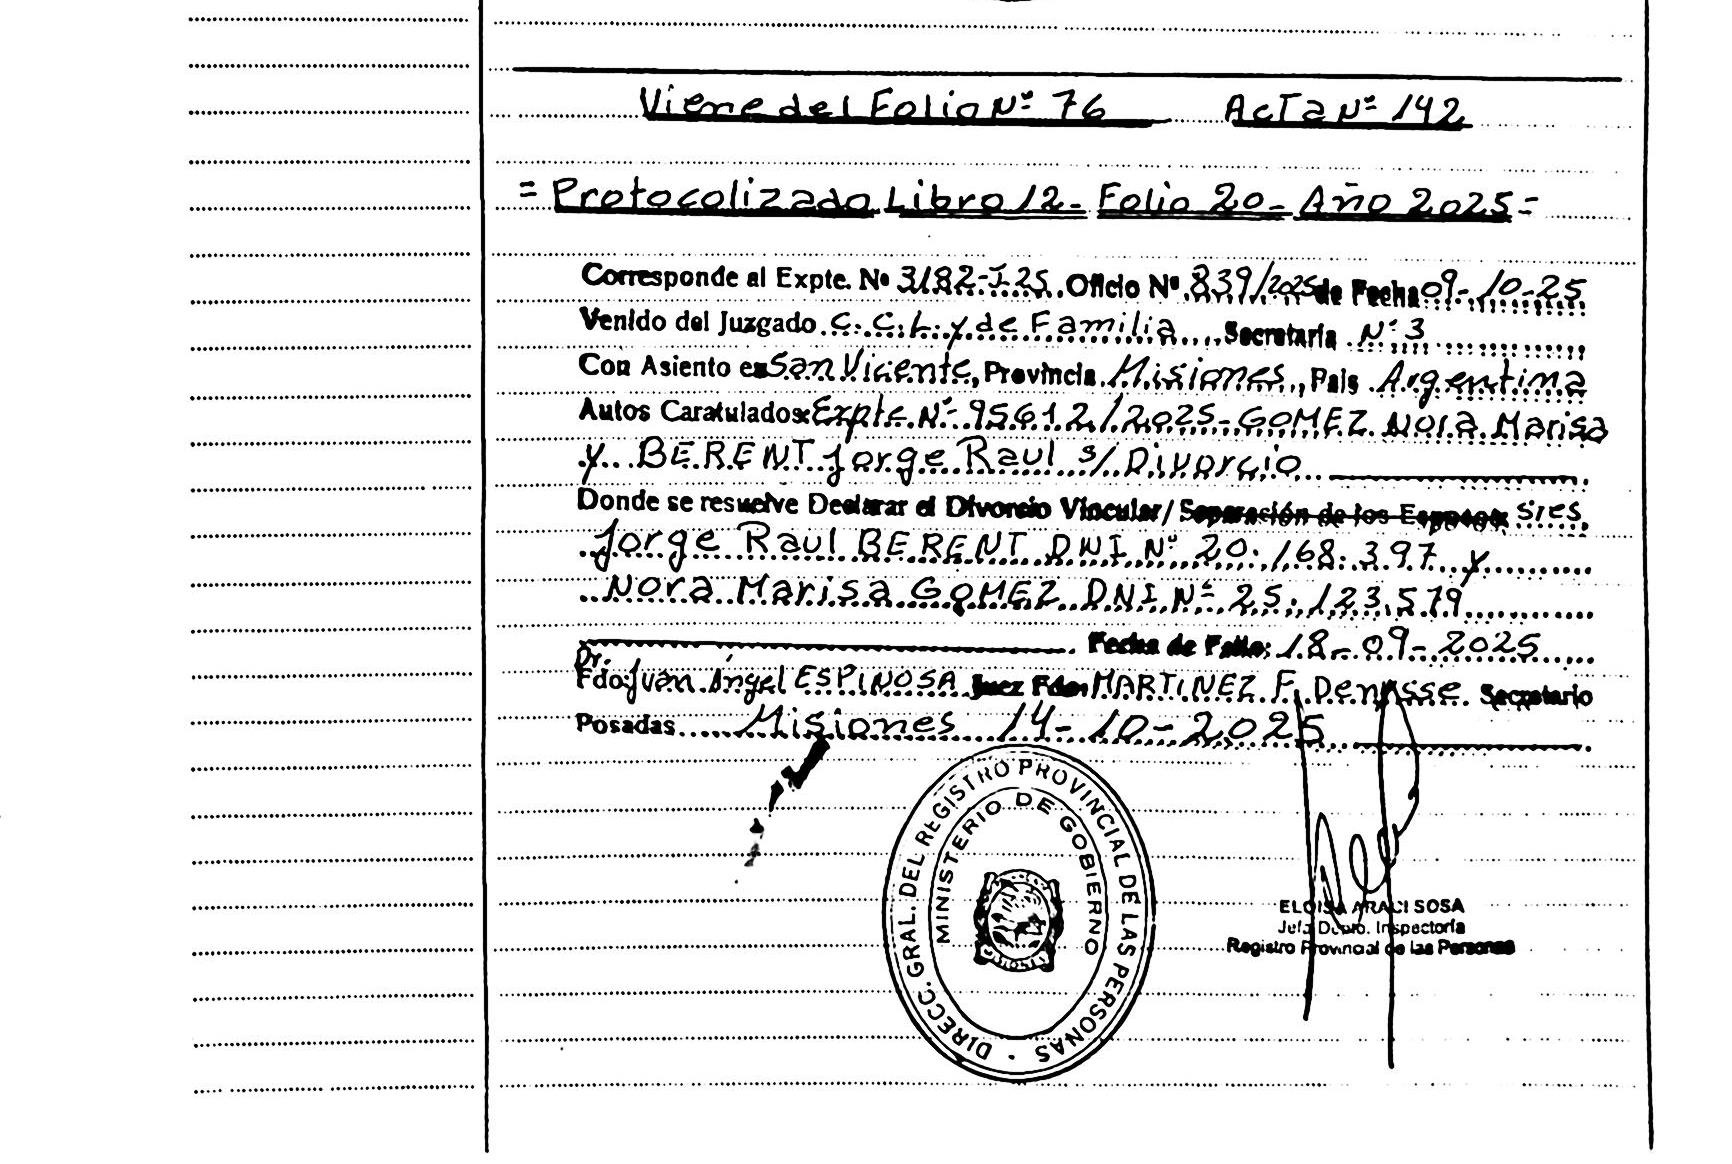 Viene del Folio Nº 76 Acta Nº 142
= Protocolizado Libro 12- Folio 20- Año 2025=
Corresponde al Expte. Nº 3182-I-25. Oficio Nº 839/2025 de Fecha 09-10-25
Venido del Juzgado C.C.L. y de Familia Secretaría Nº 3
Con Asiento en San Vicente, Provincia Misiones, País Argentina
Autos Caratulados: Expte Nº 95612/2025-GOMEZ Nora Marisa
y BERENT Jorge Raul s/Divorcio
Donde se resuelve Declarar el Divorcio Vincular/ Separación de los Esposos Sres.
Jorge Raul BERENT DNI Nº 20.168.397 y
Nora Marisa GOMEZ DNI Nº 25.123.579
Fecha de Fallo: 18-09-2025
Dr.
Fdo: Juan Ángel ESPINOSA Juez Fdo: MARTINEZ F. Denisse Secretario
Posadas Misiones 14-10-2025
DIRECC. GRAL. DEL REGISTRO PROVINCIAL DE LAS PERSONAS
MINISTERIO DE GOBIERNO
ELOISA ARACI SOSA
Jefa Depto. Inspectoría
Registro Provincial de las Personas